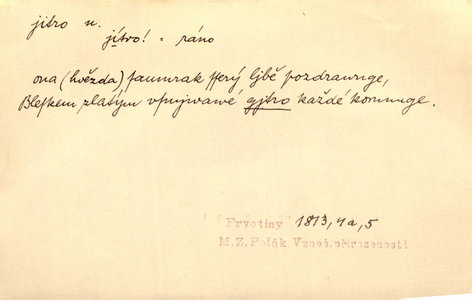 jitro n.
jítro! = ráno
ona (hvězda) saumrak sserý ljbě pozdrawuge,
Bleskem zlatým vsmjwawé gjtro každé korunuge.
"Prvotiny" 1813, 4a, 5
M. Z. Polák. Vzneš. přirozenosti